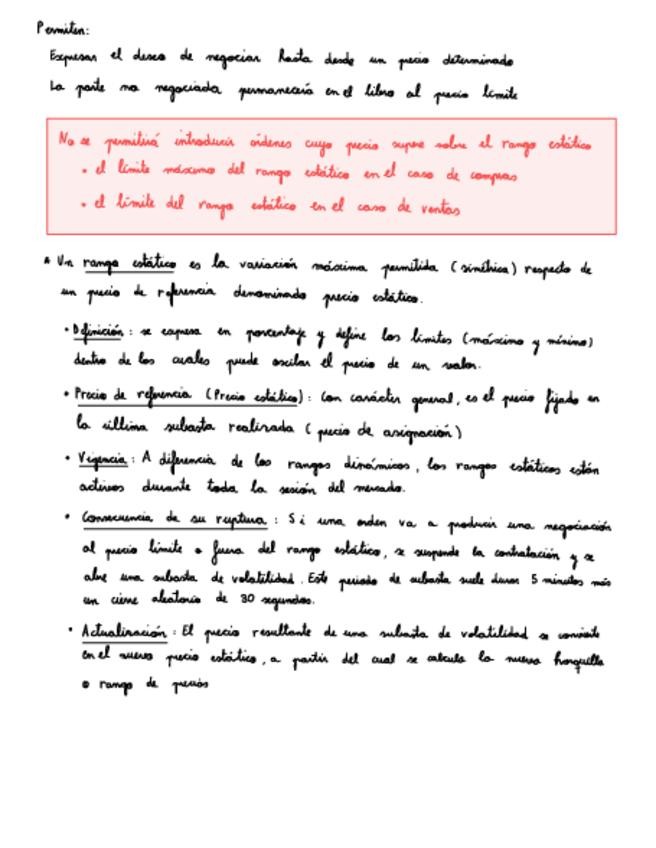 Permiten:
Expresar el deseo de negociar hasta desde un precio determinado
La parte no negociada permanecerá en el libro al precio límite
No se permitirá introducir órdenes cuyo precio supere sobre el rango estático
• el límite máximo del rango estático en el caso de compras
• el límite del rango estático en el caso de ventas
* Un rango estático es la variación máxima permitida (simétrica) respecto de
un precio de referencia denominado precio estático.
• Definición: se expresa en porcentaje y define los límites (máximo y mínimo)
dentro de los cuales puede oscilar el precio de un valor.
• Precio de referencia (Precio estático): Con carácter general, es el precio fijado en
la última subasta realizada (precio de asignación)
• Vigencia: A diferencia de los rangos dinámicos, los rangos estáticos están
activos durante toda la sesión del mercado.
• Consecuencia de su ruptura: Si una orden va a producir una negociación
al precio límite o fuera del rango estático, se suspende la contratación y se
abre una subasta de volatilidad. Este periodo de subasta suele durar 5 minutos más
un cierre aleatorio de 30 segundos.
• Actualización: El precio resultante de una subasta de volatilidad se convierte
en el nuevo precio estático, a partir del cual se calcula la nueva horquilla
o rango de precios